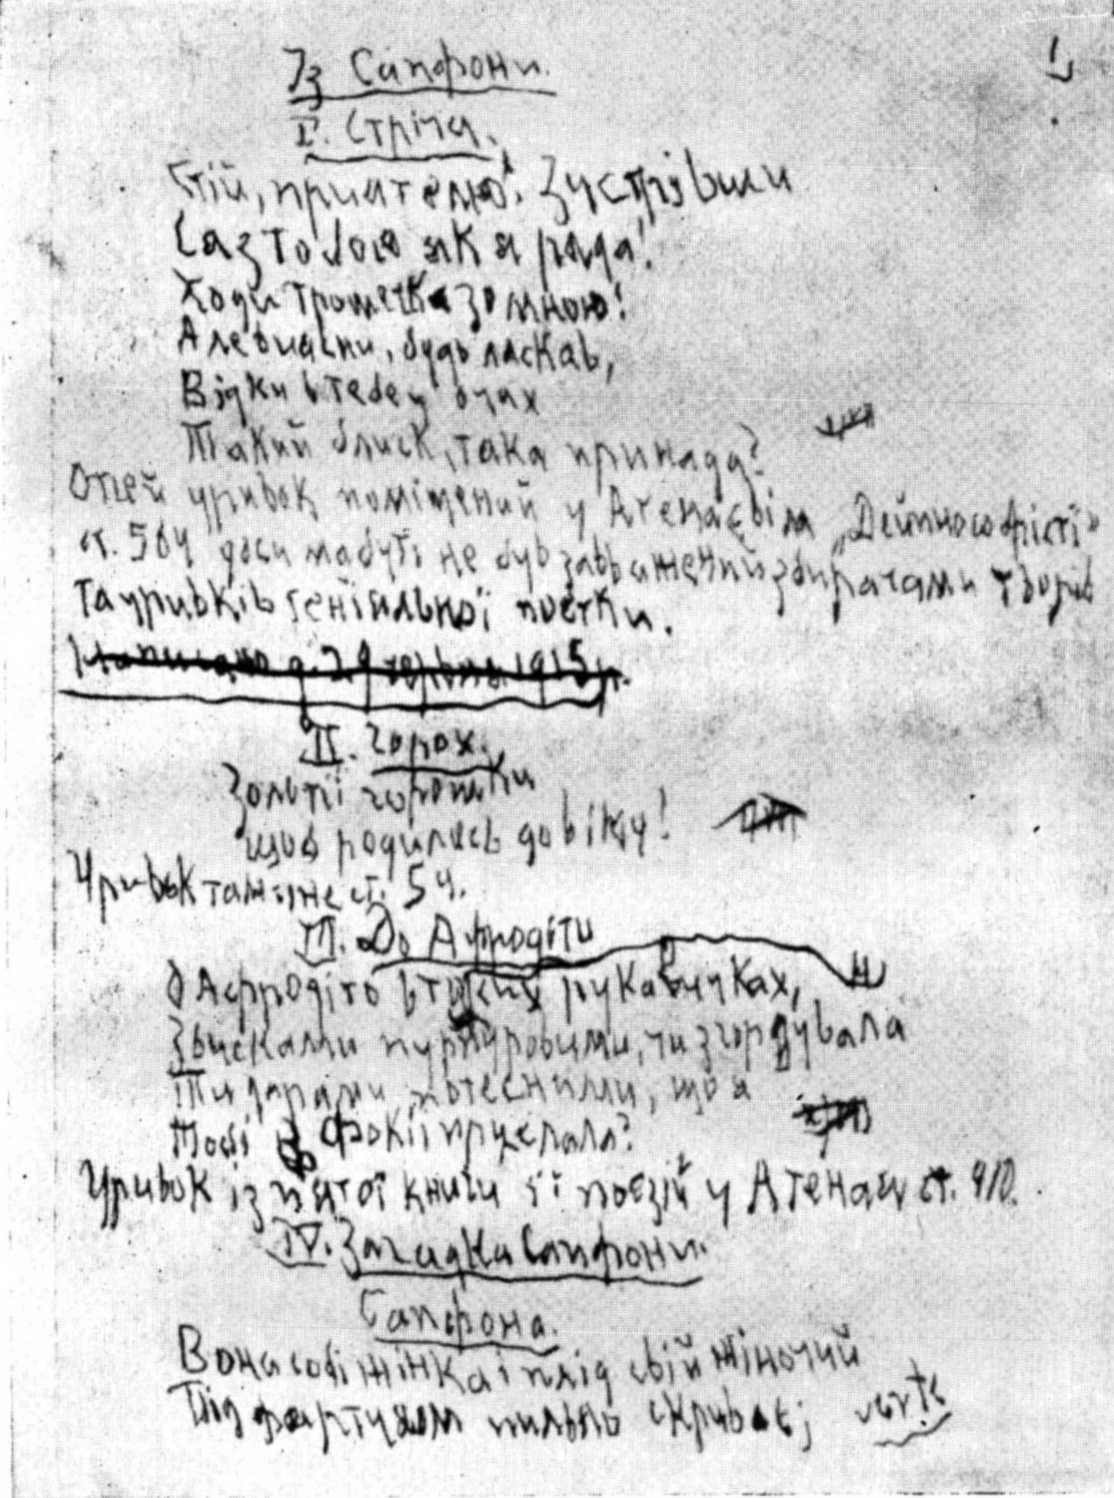 Із Сапфони.
1
I. Стріча.
Стій, приятелю! Зустрівши
Ся з тобою як я рада!
Ходи трошечка зо мною!
Але виясни, будь ласкав,
Відки в тебе у очах
Такий блиск, така принада?
Отсей уривок поміщений у Атенаєвім „Дейпнософісті"
ст. 564 доси мабуть не був завважений збирачами творів
та уривків геніяльної поетки.
Написано д. 29 червня 1915 р.
II. Горох.
Золоті горошки
щоб родились до віку!
Уривок там же ст. 54.
III. До Афродіти
О Афродіто в тих рукавичках,
З висками пурпуровими, чи згордувала
Ти дарами почесними, що я
Тобі з Фокії прислала?
Уривок із пятої книги її поезій у Атеная ст. 410.
IV. Загадка Сапфони.
Сапфона.
Вона собі жінка і плід свій жіночий
Під фартухом пильно скриває;
verte